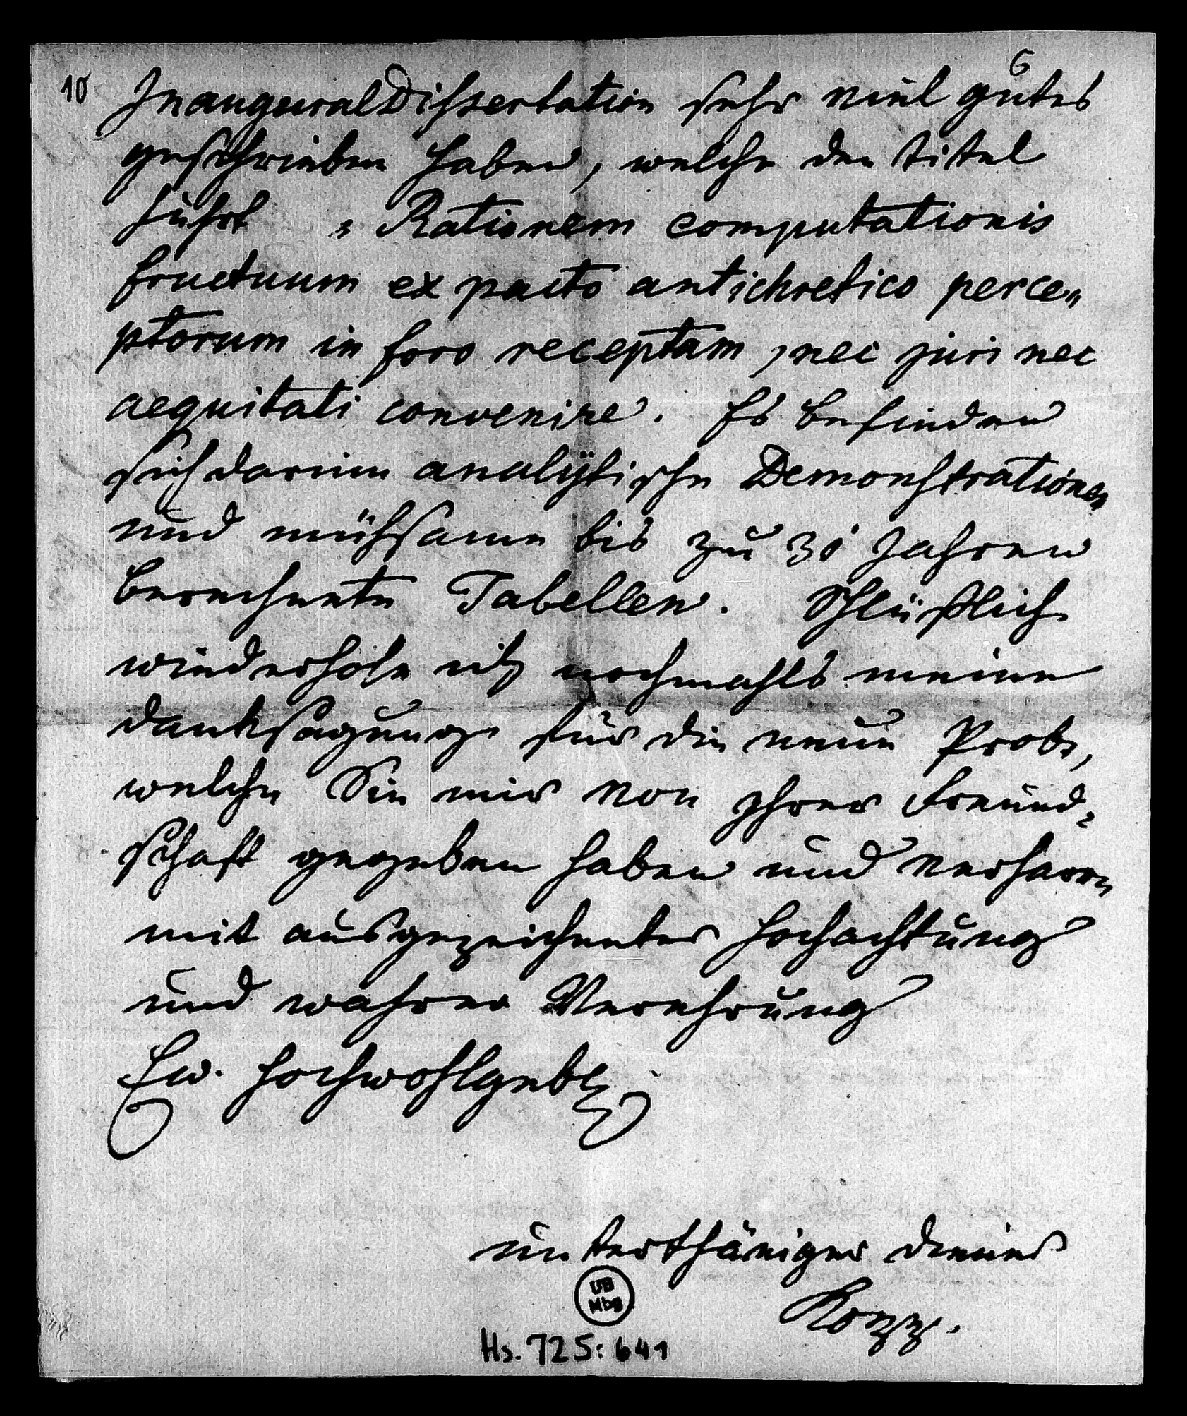 10 6
Inaugural Dissertation sehr viel gutes
geschrieben haben, welche den titel
führt „Rationem computationis
fructuum ex pacto antichretico perce„
ptorum in foro receptam, nec juri nec
aequitati convenire. Es befinden
sich darinn analÿtische Demonstrationen
und mühsame bis zu 30 Jahren
berechnete Tabellen. Schlüßlich
wiederhole ich nochmahls meine
danksagung für die neue Probe,
welche Sie mir von Ihrer Freund„
schaft gegeben haben und verharre
mit ausgezeichneter Hochachtung
und wahrer Verehrung
Ew. Hochwohlgeb
unterthäniger diener
UB
Mbg
Hs. 725: 641